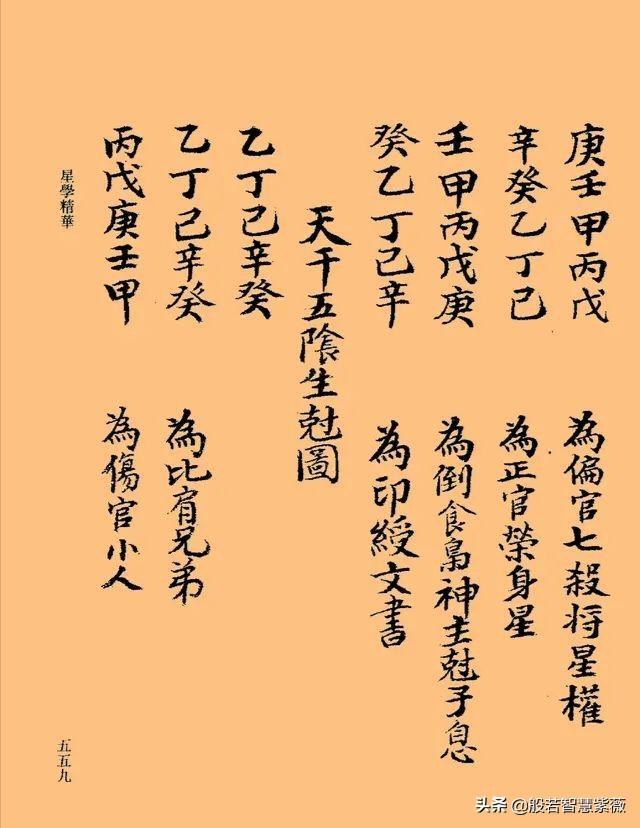 庚壬甲丙戊 為偏官七殺将星權
辛癸乙丁己 為正官榮身星
壬甲丙戊庚 為倒食梟神主尅子息
癸乙丁己辛 為印綬文書
天干五陰生尅圖
乙丁己辛癸
乙丁己辛癸 為比肩兄弟
丙戊庚壬甲 為傷官小人
星學精華
五五九
头条 @般若智慧紫薇